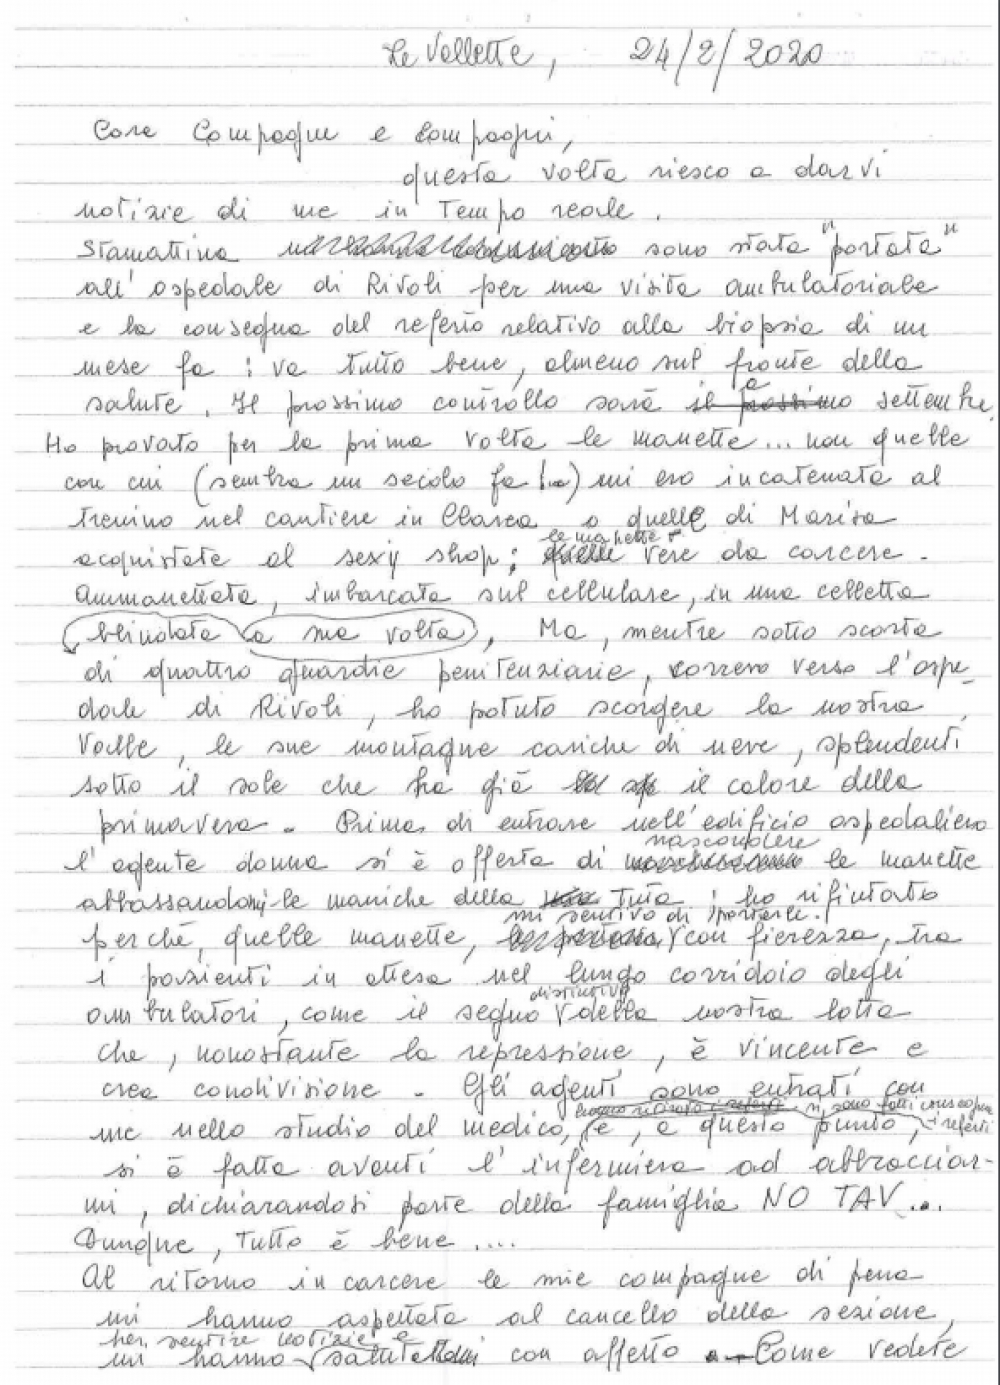 Le Vallette, 24/2/2020
Care Compagne e compagni,
questa volta riesco a darvi
notizie di me in Tempo reale.
Stamattina sono stata "portata"
all'ospedale di Rivoli per una visita ambulatoriale
e la consegna del referto relativo alla biopsia di un
mese fa : va tutto bene, almeno sul fronte della
salute. Il prossimo controllo sarà a settembre.
Ho provato per la prima volta le manette... non quelle
con cui (sembra un secolo fa!...) mi ero incatenata al
trenino nel cantiere in Clarea o quelle di Marisa
acquistate al sexy shop; le manette vere da carcere.
Ammanettata, imbarcata sul cellulare, in una celletta
blindata a sua volta, Ma, mentre sotto scorta
di quattro guardie penitenziarie, correvo verso l'ospe-
dale di Rivoli, ho potuto scorgere la nostra
Valle, le sue montagne cariche di neve, splendenti
sotto il sole che ha già il calore della
primavera. Prima di entrare nell'edificio ospedaliero
l'agente donna si è offerta di nascondere le manette
abbassandomi le maniche della Tuta : ho rifiutato
perché, quelle manette, mi sentivo di portarle con fierezza, tra
i pazienti in attesa nel lungo corridoio degli
ambulatori, come il segno distintivo della nostra lotta
che, nonostante la repressione, è vincente e
crea condivisione. Gli agenti sono entrati con
me nello studio del medico, si sono fatti consegnare i referti e, a questo punto,
si è fatta avanti l'infermiera ad abbracciar-
mi, dichiarandosi parte della famiglia NO TAV...
Dunque, Tutto è bene....
Al ritorno in carcere le mie compagne di pena
mi hanno aspettata al cancello della sezione,
per sentire notizie e
mi hanno con affetto. Come vedete